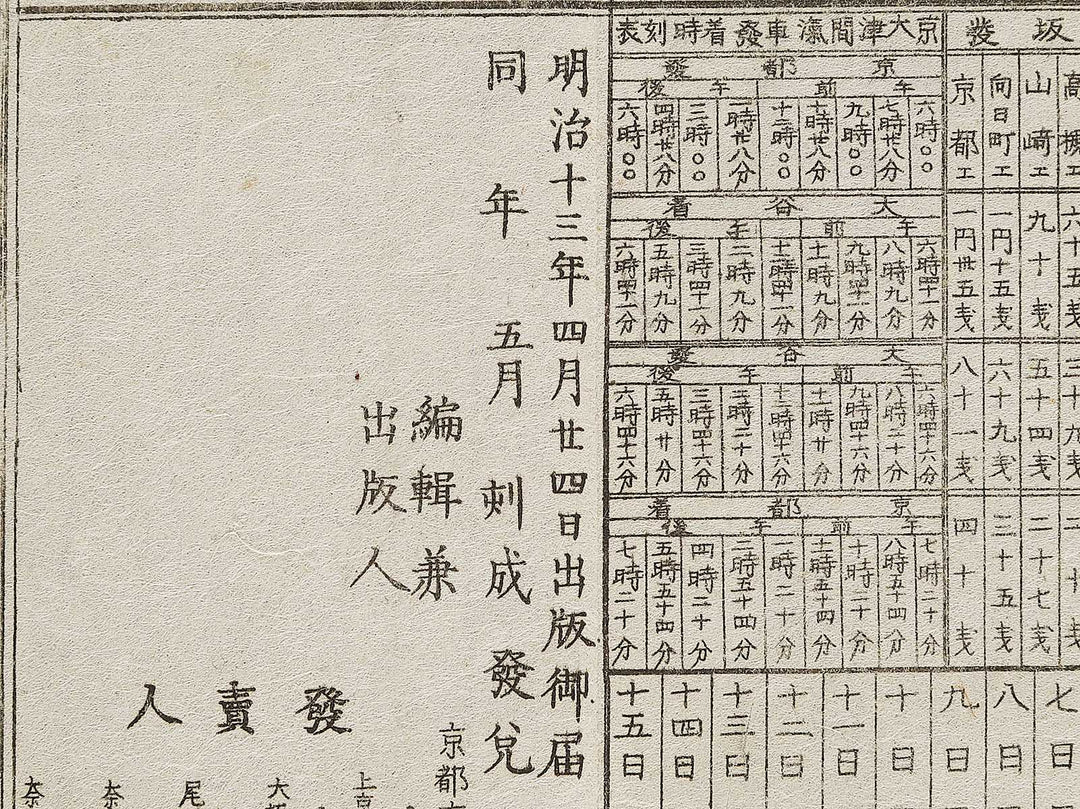 坂發
高槻エ
六十五戔
三十九戔
二十戔
山崎エ
九十戔
五十四戔
二十七戔
向日町エ
一円十五戔
六十九戔
三十五戔
京都エ
一円卅五戔
八十一戔
四十戔
京大津間滊車發着時刻表
京都發
午前
午後
六時〇〇
七時廿八分
九時〇〇
十時廿八分
十二時〇〇
一時廿八分
三時〇〇
四時廿八分
六時〇〇
大谷着
午前
午後
六時四十一分
八時九分
九時四十一分
十一時九分
十二時四十一分
二時九分
三時四十一分
五時九分
六時四十一分
大谷發
午前
午後
六時四十六分
八時二十分
九時四十六分
十一時廿分
十二時四十六分
二時二十分
三時四十六分
五時廿分
六時四十六分
京都着
午前
午後
七時二十分
八時五十四分
十時二十分
十一時五十四分
一時二十分
二時五十四分
四時二十分
五時五十四分
七時二十分
七日
八日
九日
十日
十一日
十二日
十三日
十四日
十五日
明治十三年四月廿四日出版御届
同年五月刺成發兌
編輯兼
出版人
京都
發賣人
上京
大
尾
奈
奈